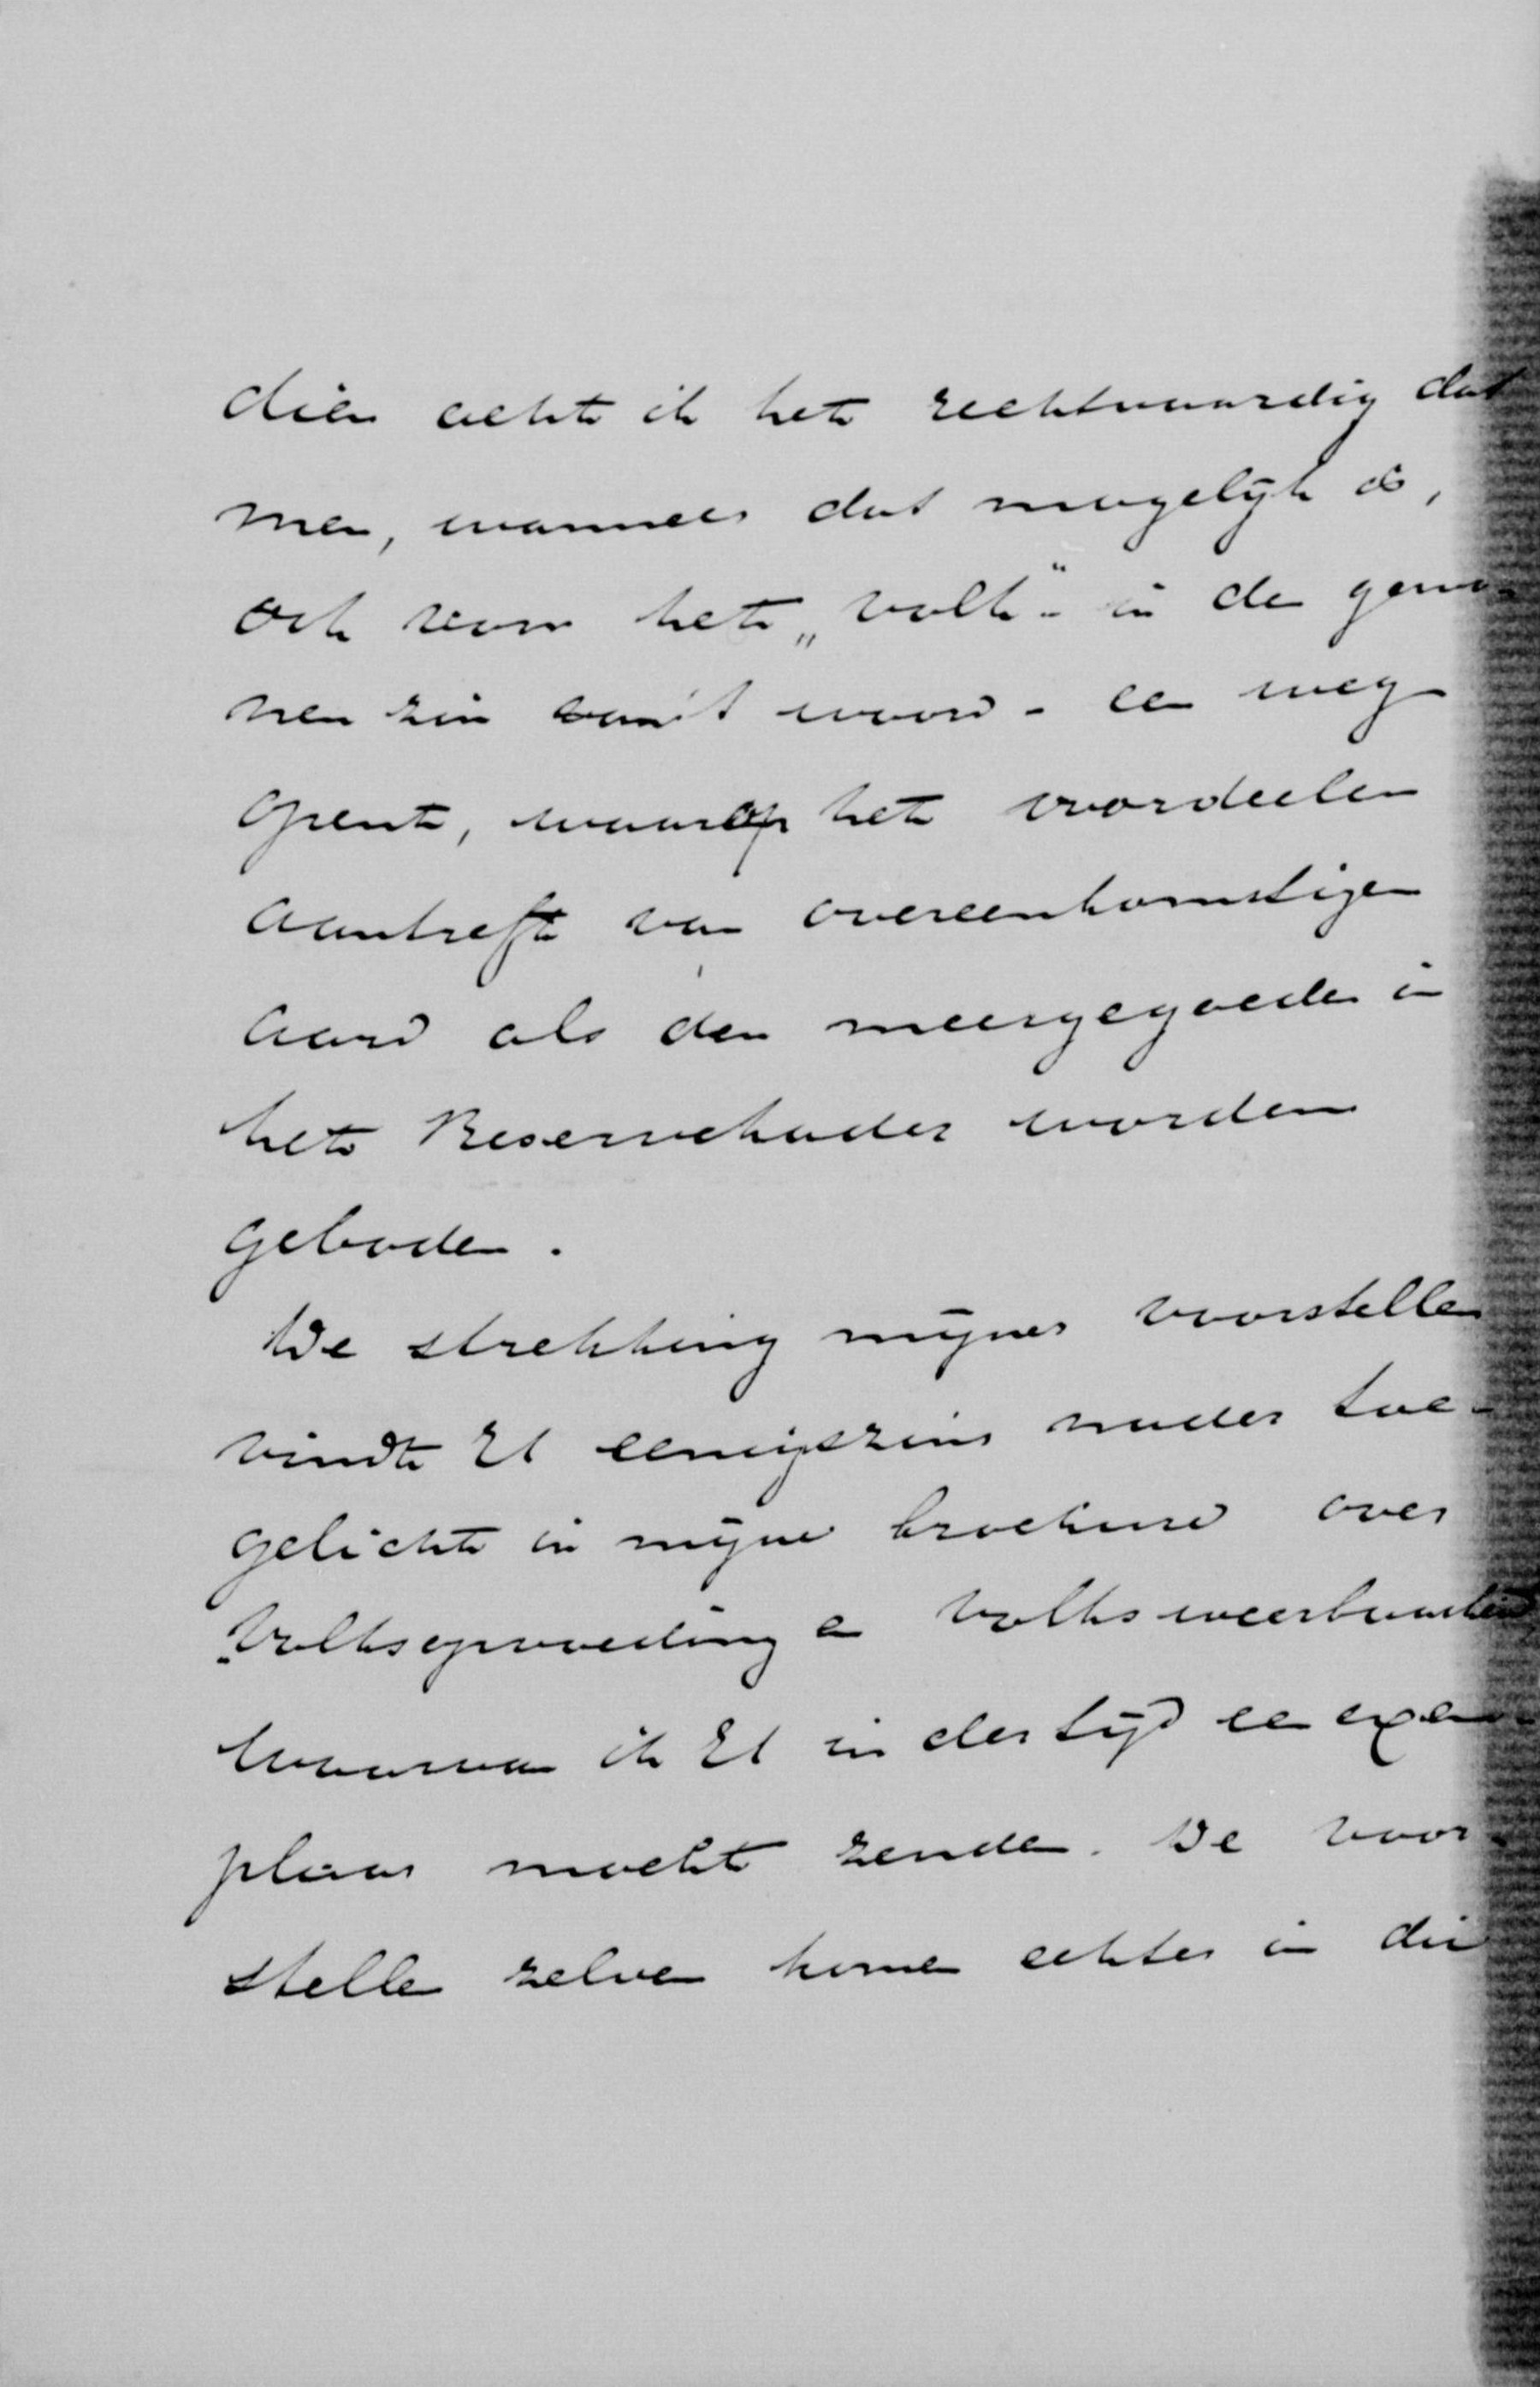 dien acht ik het rechtvaardig dat
men, wanneer dat mogelijk is,
ook voor het „volk" - in de gewo-
nen zin van 't woord - een weg
opent, waarop het voordeelen
aantreft van overeenkomstigen
aard als den meergegoeden in
het Reservekader worden
geboden.
De strekking mijner voorstellen
vindt U eenigszins nader toe-
gelicht in mijne brochure over
Volksopvoeding en Volksweerbaarheid
waarvan ik U in der tijd een exem-
plaar mocht zenden. De voor-
stellen zelven komen echter in die